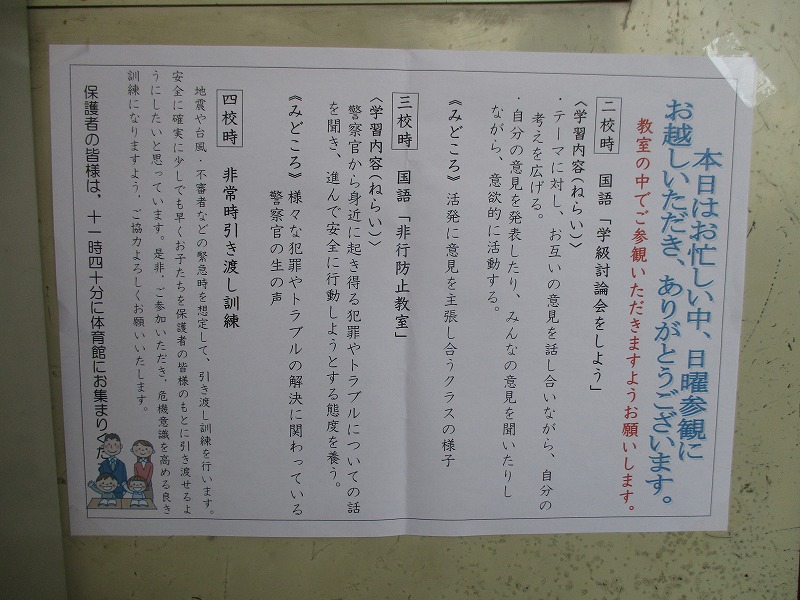 本日はお忙しい中、日曜参観に
お越しいただき、ありがとうございます。
教室の中でご参観いただきますようお願いします。
二校時 国語「学級討論会をしよう」
〈学習内容(ねらい)〉
・テーマに対し、お互いの意見を話し合いながら、自分の
考えを広げる。
・自分の意見を発表したり、みんなの意見を聞いたりし
ながら、意欲的に活動する。
《みどころ》 活発に意見を主張し合うクラスの様子
三校時 国語「非行防止教室」
〈学習内容(ねらい)〉
警察官から身近に起き得る犯罪やトラブルについての話
を聞き、進んで安全に行動しようとする態度を養う。
《みどころ》 様々な犯罪やトラブルの解決に関わっている
警察官の生の声
四校時 非常時引き渡し訓練
地震や台風・不審者などの緊急時を想定して、引き渡し訓練を行います。
安全に確実に少しでも早くお子たちを保護者の皆様のもとに引き渡せるよ
うにしたいと思っています。是非、ご参加いただき、危機意識を高める良き
訓練になりますよう、ご協力よろしくお願いいたします。
保護者の皆様は、十一時四十分に体育館にお集まりくだ